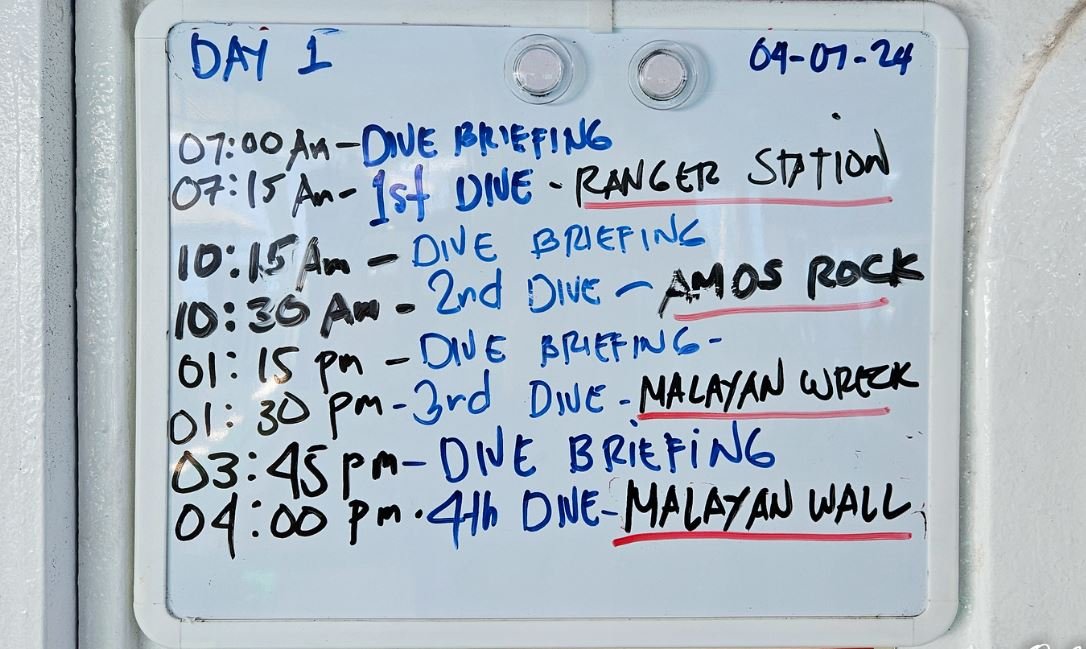 DAY 1 04-07-24
07:00 Am - DIVE BRIEFING
07:15 Am - 1st DIVE - RANGER STATION
10:15 Am - DIVE BRIEFING
10:30 Am - 2nd DIVE - AMOS ROCK
01:15 pm - DIVE BRIEFING -
01:30 pm - 3rd DIVE - MALAYAN WRECK
03:45 pm - DIVE BRIEFING
04:00 pm . 4th DIVE - MALAYAN WALL